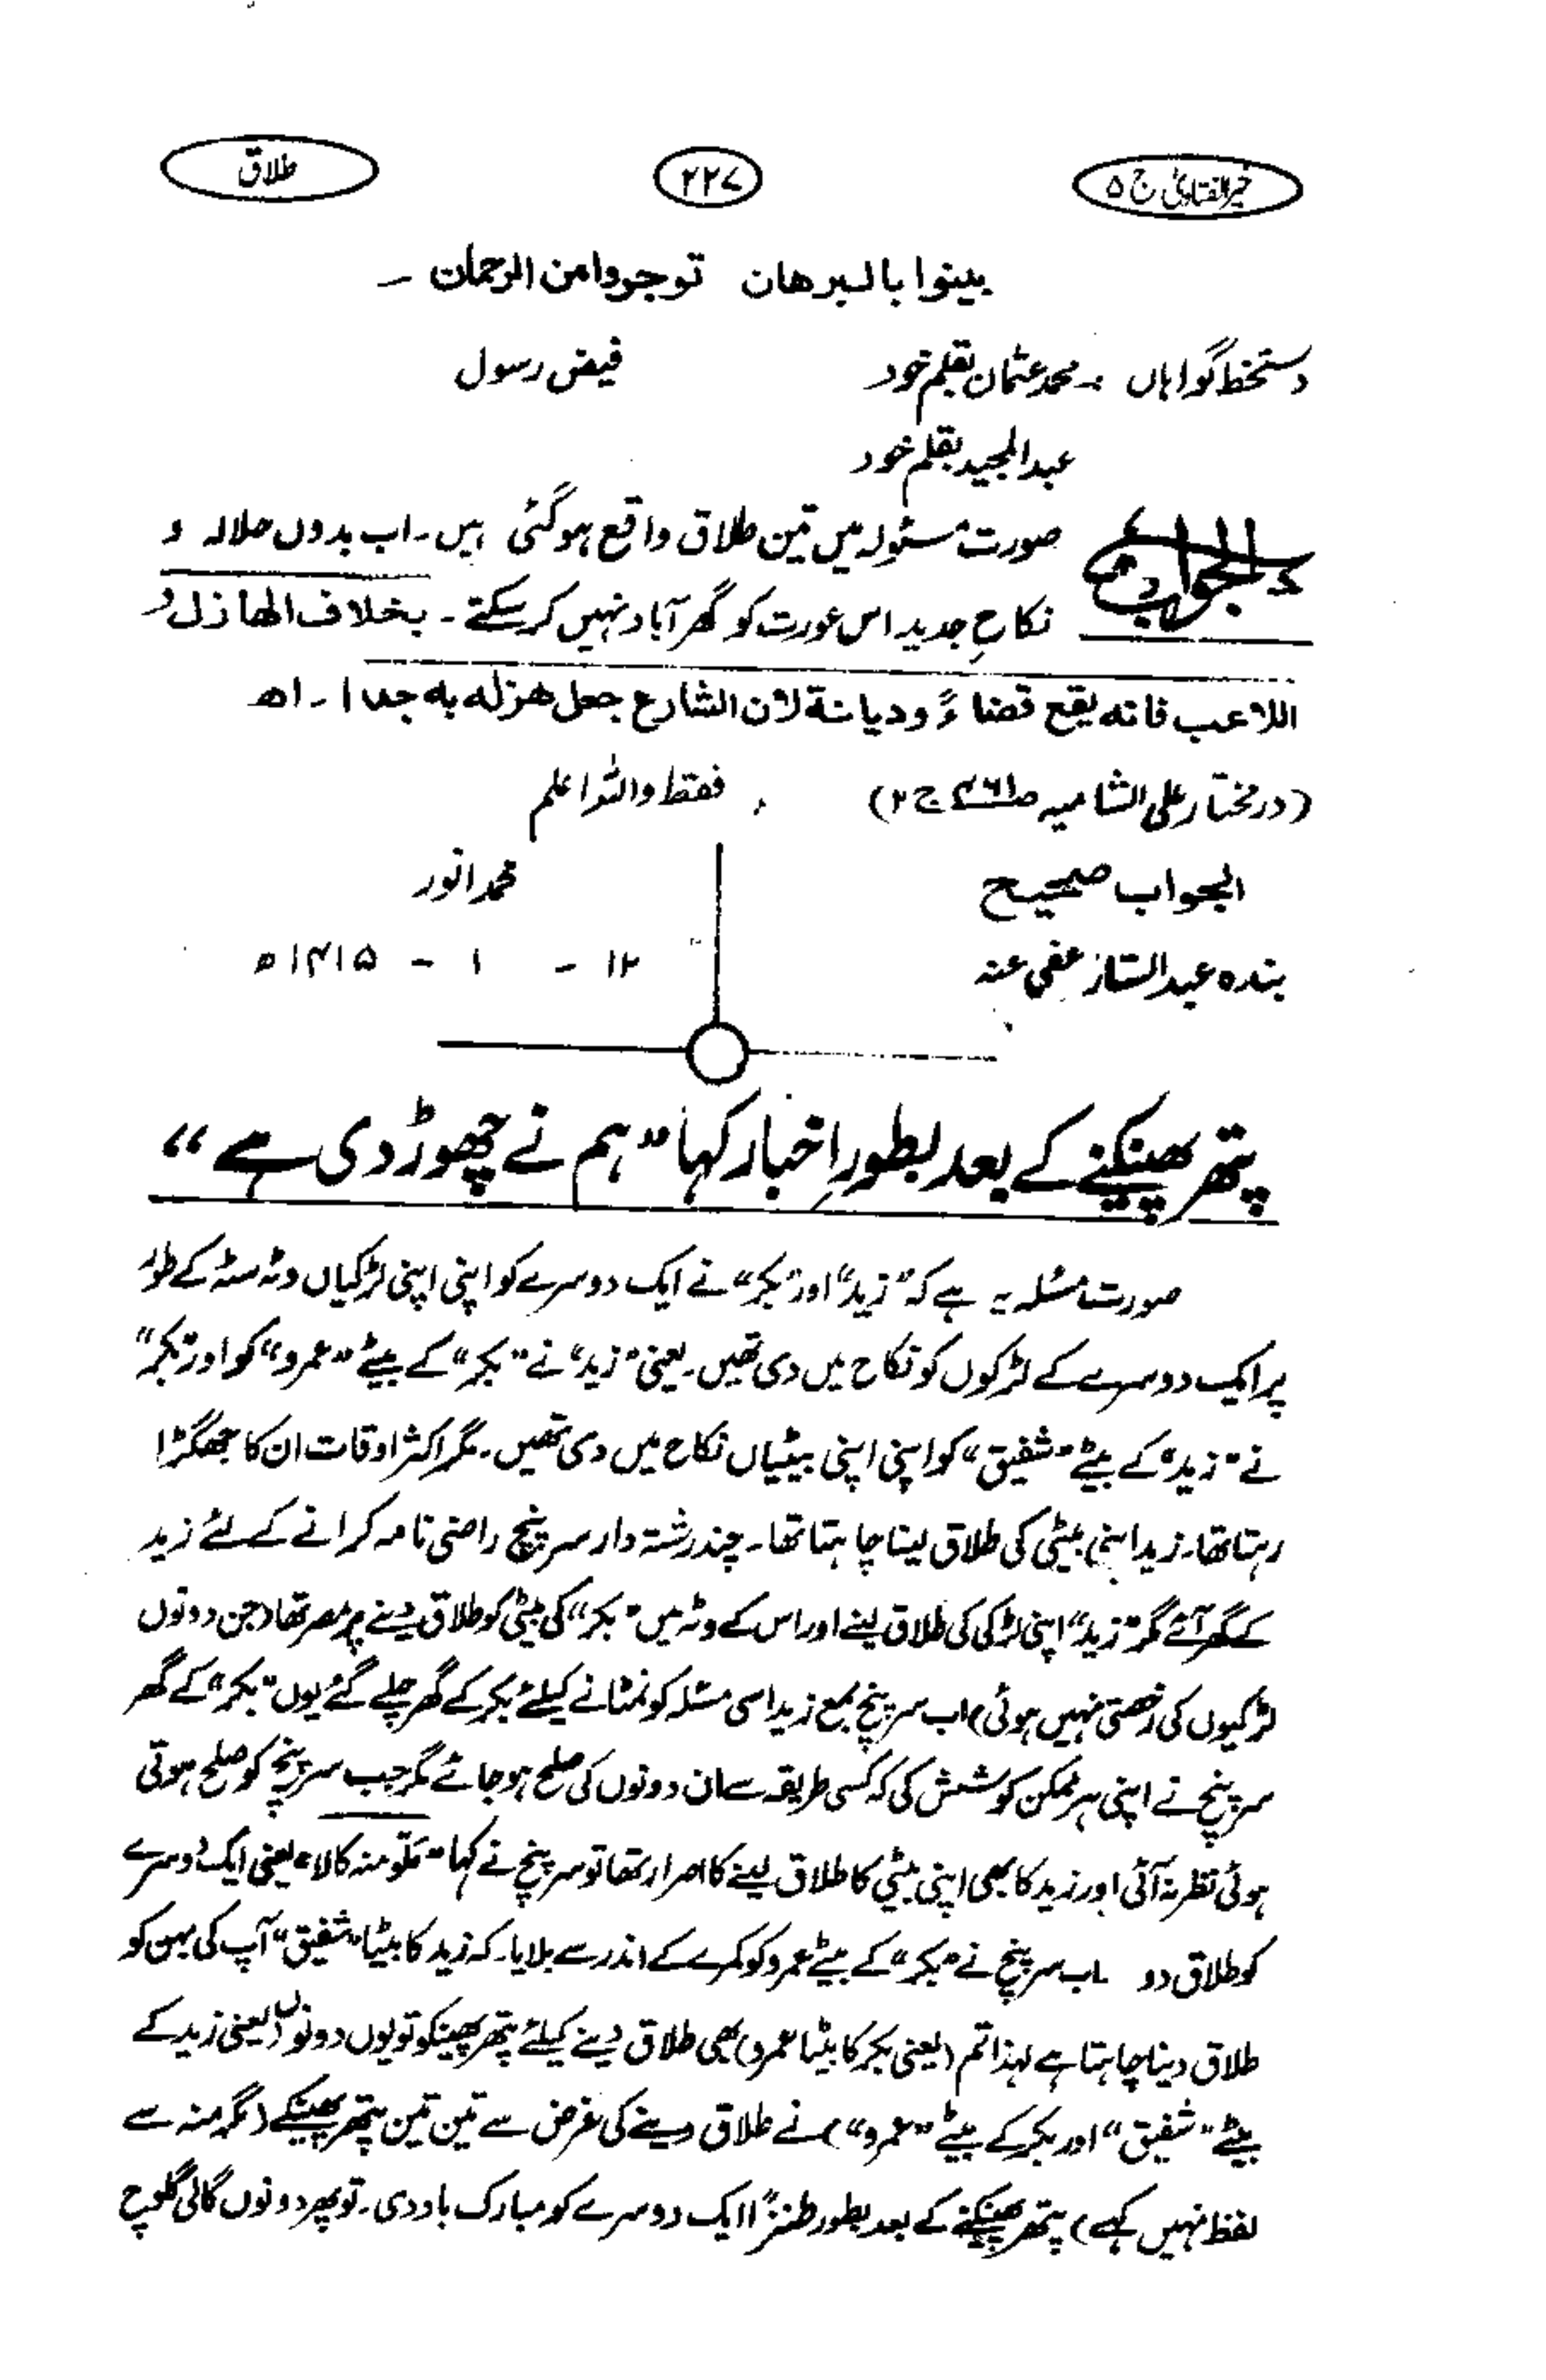 خیر الفتاویٰ ج ۵
۲۲۷
طلاق
بینوا بالبرهان توجروا من الرحمان ۔
دستخط گواہاں :۔ محمد عثمان بقلم خود فیض رسول
عبد المجید بقلم خود
الجواب صورت مسئولہ میں تین طلاق واقع ہوگئی ہیں ۔ اب بدوں حلالہ و
نکاحِ جدید اس عورت کو گھر آباد نہیں کرسکتے ۔ بخلاف الهازل و
اللاعب فانه يقع قضاءً و ديانة لان الشارع جعل هزله به جدا ۔ اھ
(در مختار علی الشامیہ ص۴۶۱ ج۲) ، فقط واللہ اعلم
الجواب صحیح
محمد انور
بندہ عبد الستار عفی عنہ
۱۲ - ۱ - ۱۴۱۵ ھ
پتھر پھینکنے کے بعد بطورِ اخبار کہا “ہم نے چھوڑ دی ہے”
صورت مسئلہ یہ ہے کہ “زید” اور “بکر” نے ایک دوسرے کو اپنی اپنی لڑکیاں وٹہ سٹہ کے طور
پر ایک دوسرے کے لڑکوں کو نکاح میں دی تھیں ۔ یعنی “زید” نے “بکر” کے بیٹے “عمرو” کو اور “بکر”
نے “زید” کے بیٹے “شفیق” کو اپنی اپنی بیٹیاں نکاح میں دی تھیں ۔ مگر اکثر اوقات ان کا جھگڑا
رہتا تھا ۔ زید اپنی بیٹی کی طلاق لینا چاہتا تھا ۔ چند رشتہ دار سرپنچ راضی نامہ کرانے کے لئے زید
کے گھر آئے مگر “زید” اپنی لڑکی کی طلاق لینے اور اس کے وٹہ میں “بکر” کی بیٹی کو طلاق دینے پر مصر تھا (جن دونوں
لڑکیوں کی رخصتی نہیں ہوئی) اب سرپنچ بمع زید اسی مسئلہ کو نمٹانے کیلئے بکر کے گھر چلے گئے یوں “بکر” کے گھر
سرپنچ نے اپنی ہر ممکن کوشش کی کہ کسی طریقہ سے ان دونوں کی صلح ہو جائے مگر جب سرپنچ کو صلح ہوتی
ہوئی نظر نہ آئی اور زید کا بھی اپنی بیٹی کا طلاق لینے کا اصرار تھا تو سرپنچ نے کہا “مُکّو منہ کالا” یعنی ایک دوسرے
کو طلاق دو ۔ اب سرپنچ نے “بکر” کے بیٹے عمرو کو کمرے کے اندر سے بلایا ۔ کہ زید کا بیٹا “شفیق” آپ کی بہن کو
طلاق دینا چاہتا ہے لہذا تم (یعنی بکر کا بیٹا عمرو) بھی طلاق دینے کیلئے پتھر پھینکو تو یوں دونوں (یعنی زید کے
بیٹے “شفیق” اور بکر کے بیٹے “عمرو”) نے طلاق دینے کی غرض سے تین تین پتھر پھینکے (مگر منہ سے
لفظ نہیں کہے) پتھر پھینکنے کے بعد بطور طنزاً ایک دوسرے کو مبارک باد دی ۔ تو پھر دونوں گالی گلوچ